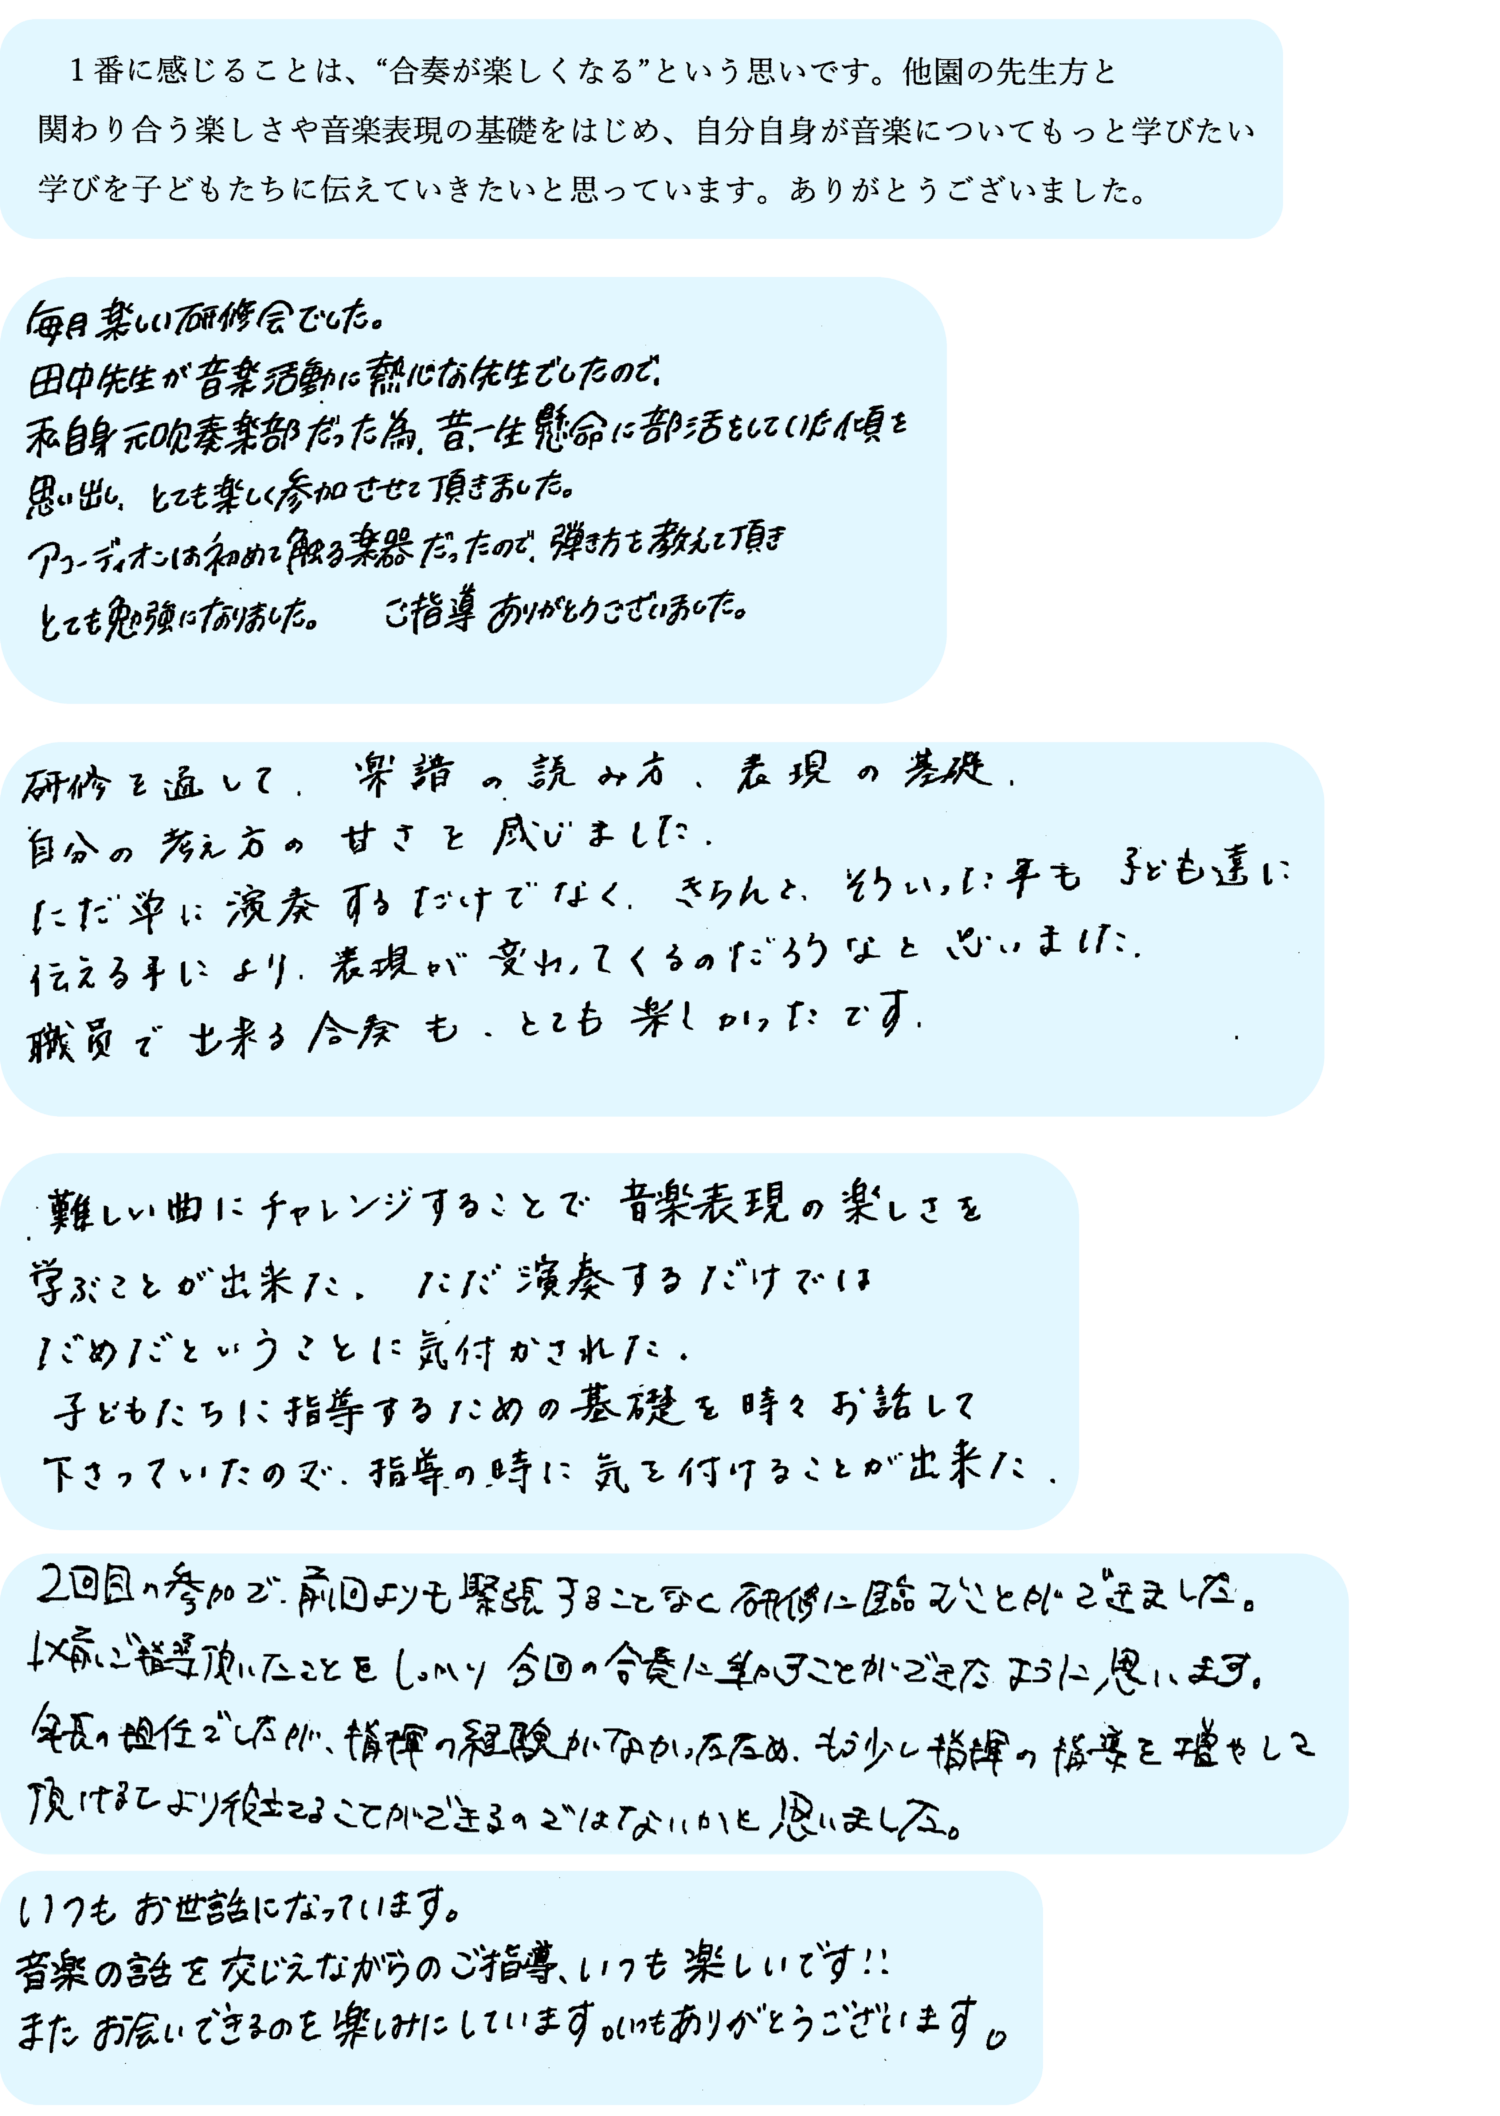 １番に感じることは、“合奏が楽しくなる”という思いです。他園の先生方と
関わり合う楽しさや音楽表現の基礎をはじめ、自分自身が音楽についてもっと学びたい
学びを子どもたちに伝えていきたいと思っています。ありがとうございました。
毎月楽しい研修会でした。
田中先生が音楽活動に熱心な先生でしたので、
私自身元吹奏楽部だった為、昔、一生懸命に部活をしていた頃を
思い出し、とても楽しく参加させて頂きました。
アコーディオンは初めて触る楽器だったので、弾き方を教えて頂き
とても勉強になりました。 ご指導ありがとうございました。
研修を通して、楽譜の読み方、表現の基礎、
自分の考え方の甘さを感じました。
ただ単に演奏するだけでなく、きちんと、そういった事も子ども達に
伝える事により、表現が変わってくるのだろうなと思いました。
職員で出来る合奏も、とても楽しかったです。
難しい曲にチャレンジすることで音楽表現の楽しさを
学ぶことが出来た。ただ演奏するだけでは
だめだということに気付かされた。
子どもたちに指導するための基礎を時々お話して
下さっていたので、指導の時に気を付けることが出来た。
2回目の参加で、前回よりも緊張することなく研修に臨むことができました。
以前ご指導頂いたことをしっかり今回の合奏に生かすことができたように思います。
年長の担任でしたが、指揮の経験がなかったため、もう少し指揮の指導を増やして
頂けるとより役立てることができるのではないかと思いました。
いつもお世話になっています。
音楽の話を交じえながらのご指導、いつも楽しいです!!
またお会いできるのを楽しみにしています。いつもありがとうございます。